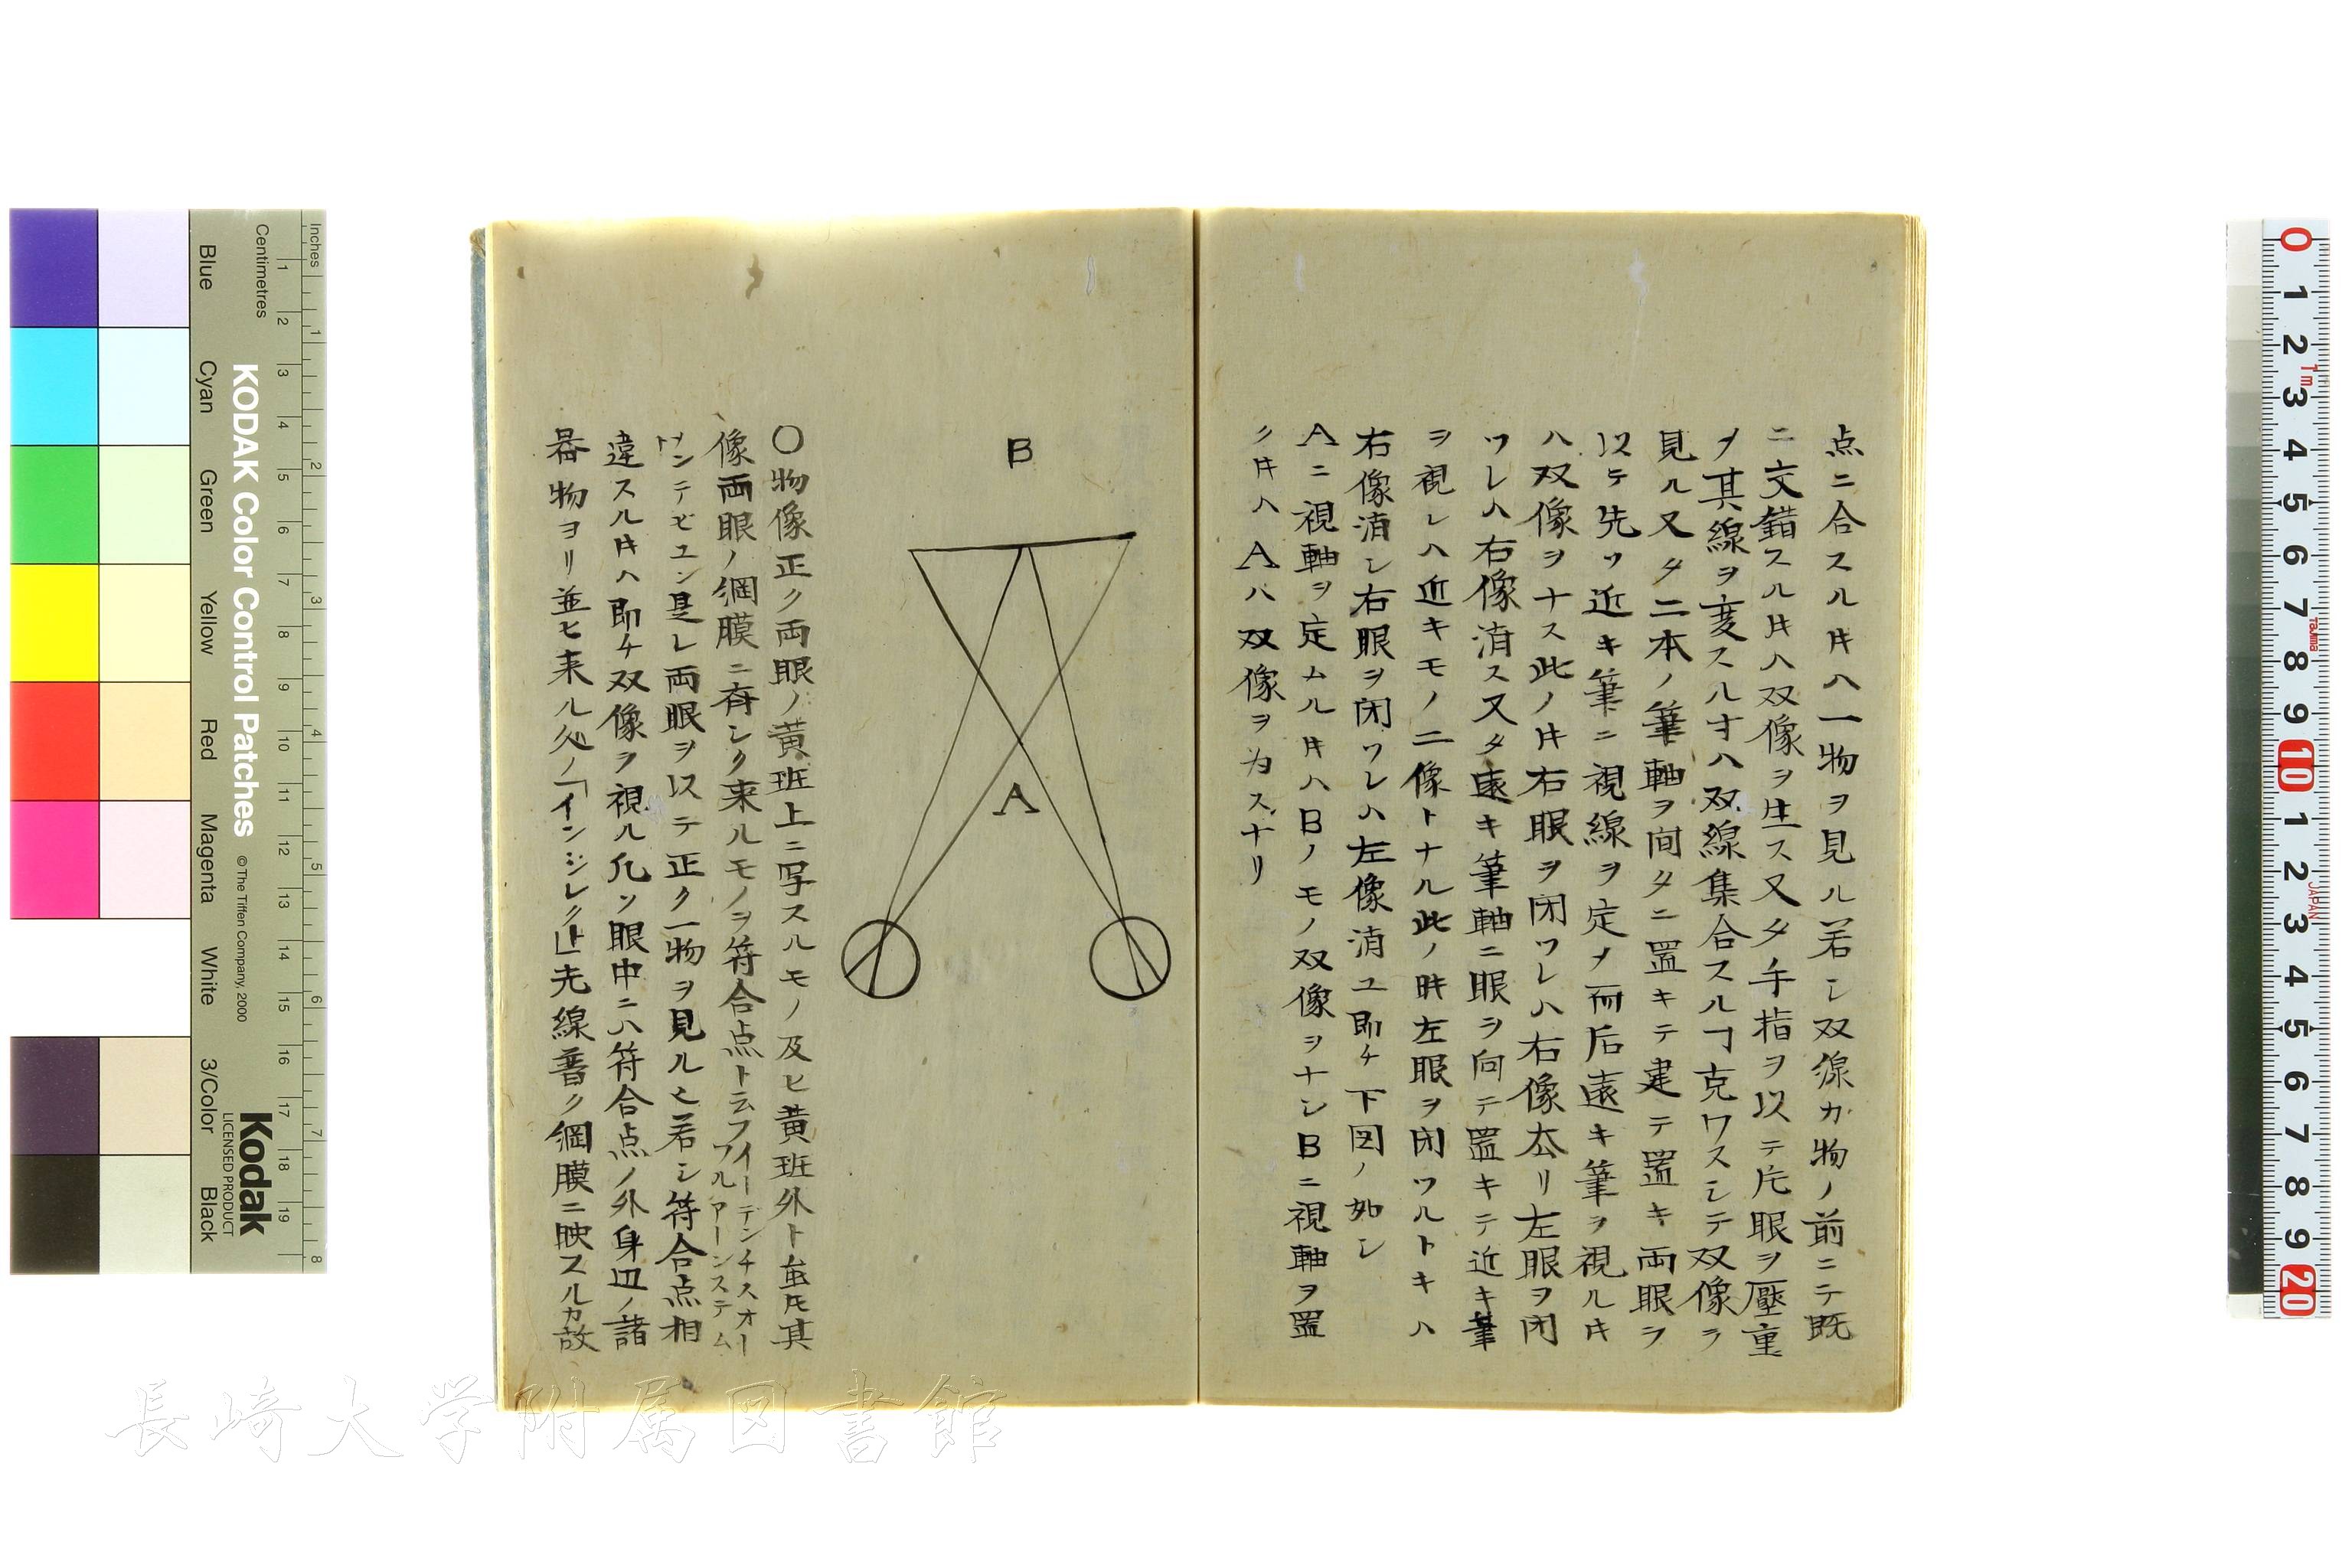 点ニ合スル𪜈ハ一物ヲ見ル若シ双線カ物ノ前ニテ既
ニ交錯スル𪜈ハ双像ヲ生ス又タ手指ヲ以テ片眼ヲ壓重
メ其線ヲ変スル寸ハ双線集合スルヿ克ワスシテ双像ヲ
見ル又タ二本ノ筆軸ヲ間タニ置キテ建テ置キ両眼ヲ
以テ先ツ近キ筆ニ視線ヲ定メ而后遠キ筆ヲ視ル𪜈
ハ双像ヲナス此ノ𪜈右眼ヲ閉ワレハ右像去リ左眼ヲ閉
ワレハ右像消ス又タ遠キ筆軸ニ眼ヲ向テ置キテ近キ筆
ヲ視レハ近キモノ二像トナル此ノ時左眼ヲ閉ワルトキハ
右像消シ右眼ヲ閉ワレハ左像消ユ即チ下図ノ如シ
Aニ視軸ヲ定ムル𪜈ハBノモノ双像ヲナシBニ視軸ヲ置
ク𪜈ハAハ双像ヲ為スナリ
B
A
○物像正ク両眼ノ黄班上ニ写スルモノ及ヒ黄班外ト虽𪜈其
像両眼ノ網膜ニ斉シク来ルモノヲ符合点ト云フイーデンチスオー
フルアーンステム
メンテピユン是レ両眼ヲ以テ正ク一物ヲ見ル也若シ符合点相
違スル𪜈ハ即チ双像ヲ視ル凡ソ眼中ニハ符合点ノ外身辺ノ諸
器物ヨリ並ヒ来ル処ノ「インジレクト」光線普ク網膜ニ映スルカ故
長崎大学附属図書館
Inches
Centimetres
KODAK Color Control Patches
© The Tiffen Company, 2000
Kodak
LICENSED PRODUCT
Blue
Cyan
Green
Yellow
Red
Magenta
White
3/Color
Black
1 2 3 4 5 6 7 8 9 10 11 12 13 14 15 16 17 18 19
1 2 3 4 5 6 7 8
0 1 2 3 4 5 6 7 8 9 10 1 2 3 4 5 6 7 8 9 20
1m
Tajima
JAPAN